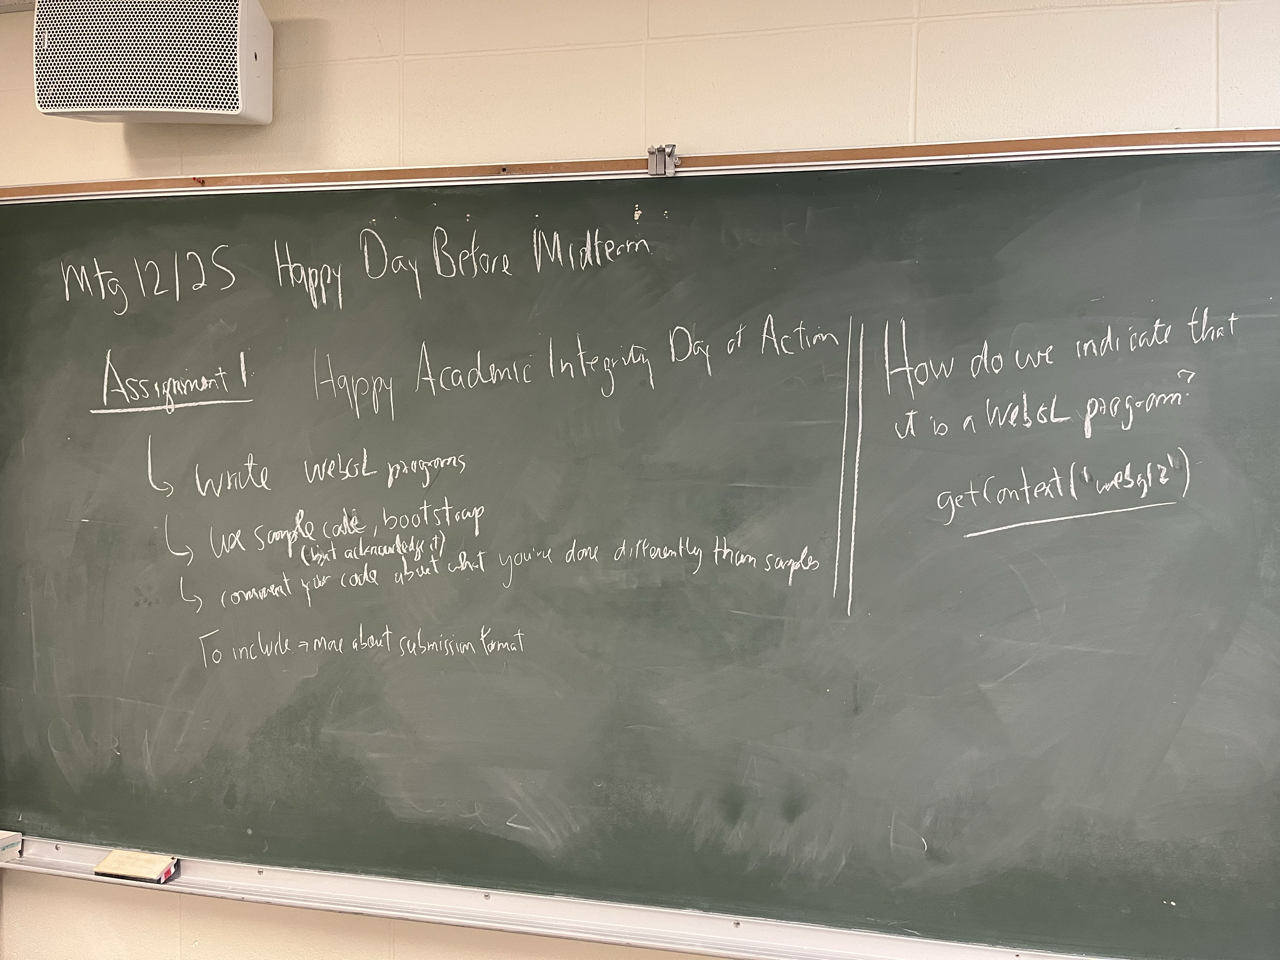 Mtg 12/25 Happy Day Before Midterm
Assignment 1 Happy Academic Integrity Day of Action
↳ write WebGL programs
↳ use sample code, bootstrap
(but acknowledge it)
↳ comment your code about what you've done differently than samples
To include → more about submission format
How do we indicate that
it is a WebGL program?
getContext('webgl2')